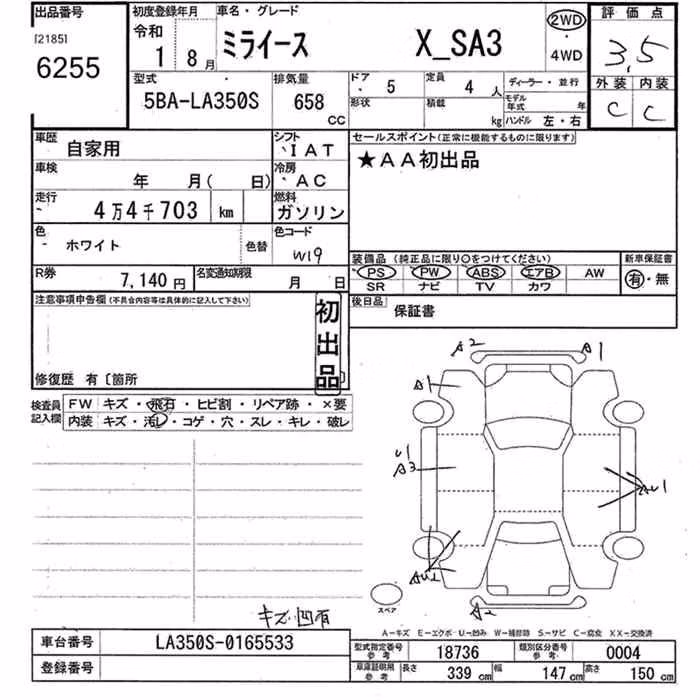 出品番号
[2185]
6255
初度登録年月
令和
1 8月
車名・グレード
ミライース X_SA3
2WD
・
4WD
評価点
3.5
外装 内装
C C
型式
5BA-LA350S
排気量
658
CC
ドア
・ 5
定員
4 人
形状
積載
kg
ディーラー・並行
モデル年式 年
ハンドル 左・右
車歴
自家用
シフト
IAT
車検
年 月( 日)
冷房
AC
走行
4万4千703 km
燃料
ガソリン
色
ホワイト
色替
色コード
W19
R券
7,140円
名変通知期限
月 日
セールスポイント(正常に機能するものに限ります)
★AA初出品
装備品(純正品に限り○をつけてください)
PS PW ABS エアB AW
SR ナビ TV カワ
新車保証書
有・無
後日品
保証書
注意事項申告欄(不具合内容等は具体的に記入して下さい)
初出品
修復歴 有〔箇所
検査員記入欄
FW キズ・飛石・ヒビ割・リペア跡・×要
内装 キズ・汚レ・コゲ・穴・スレ・キレ・破レ
A2 A1
A1
U1
A3
AU1
AU2
A2
スペア
キズ凹有
A-キズ E-エクボ U-凹み W-補修跡 S-サビ C-腐食 XX-交換済
車台番号
LA350S-0165533
登録番号
型式指定番号
参考
18736
類別区分番号
参考
0004
車庫証明用
参考
長さ 339 cm
幅 147 cm
高さ 150 cm